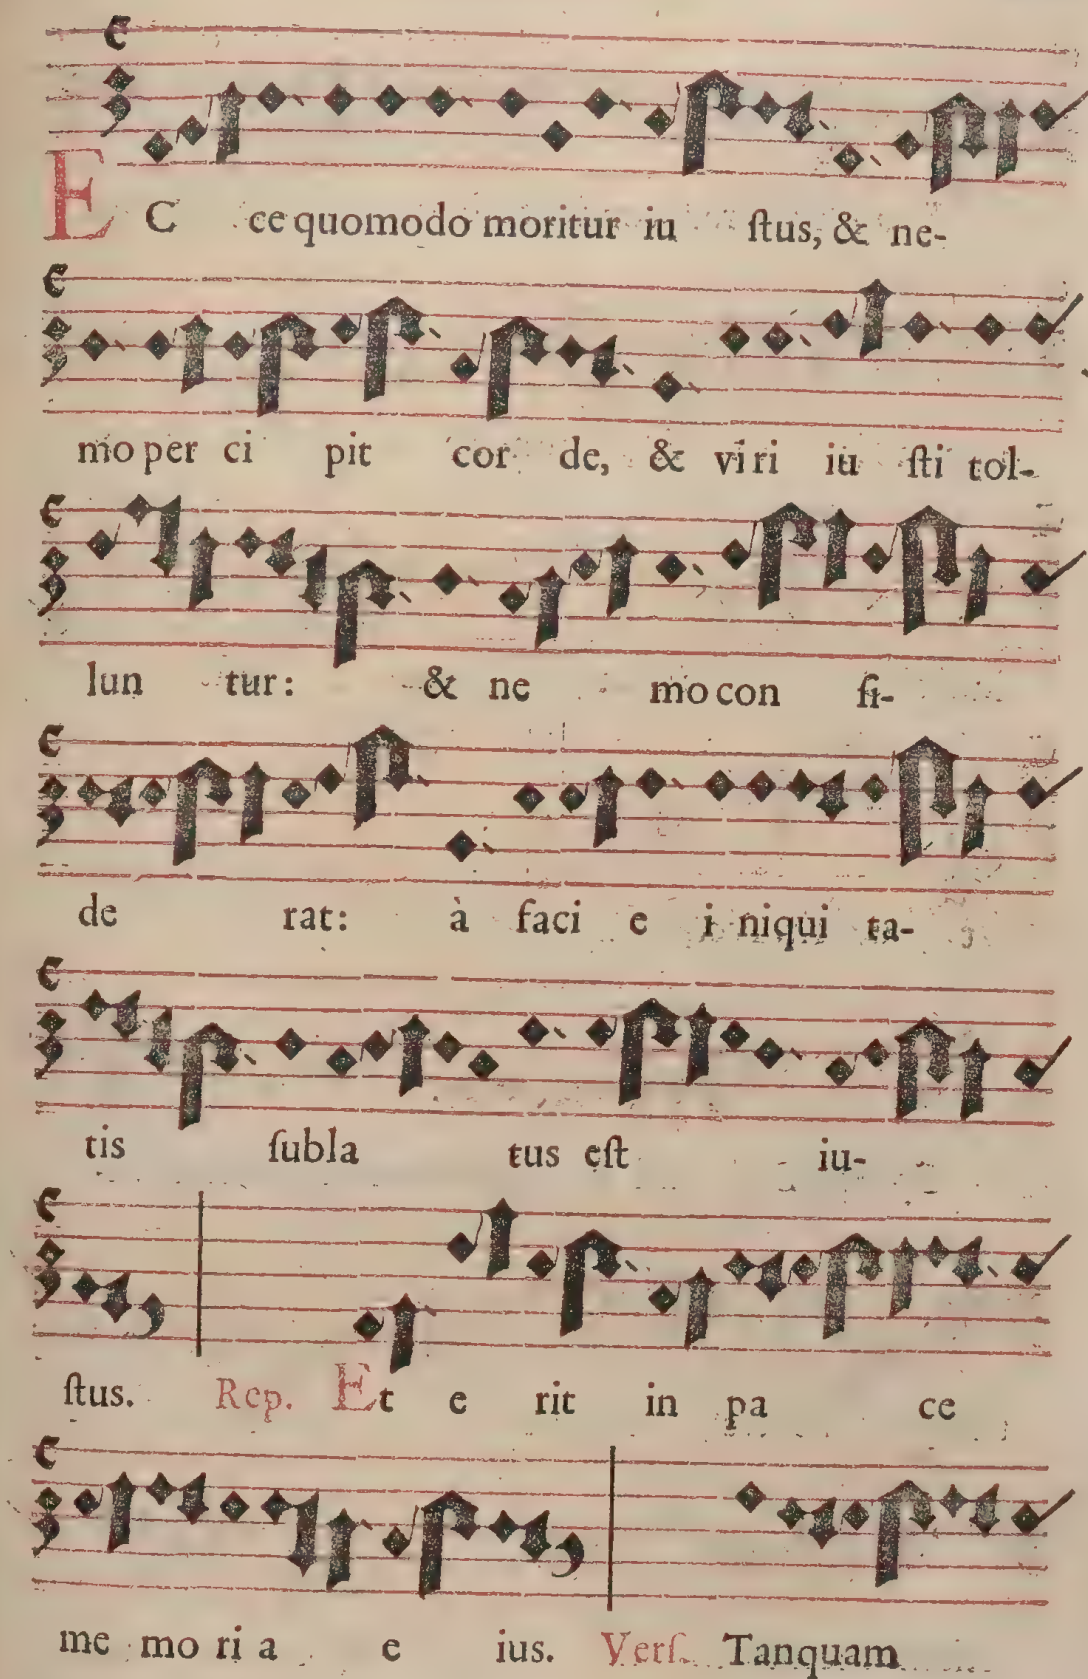 EC ce quomodo moritur iu ſtus, & ne-
mo per ci pit cor de, & viri iu ſti tol-
lun tur: & ne mo con ſi-
de rat: à faci e i niqui ta-
tis ſubla tus eſt iu-
ſtus. Rep. Et e rit in pa ce
me mo ri a e ius. Verſ. Tanquam